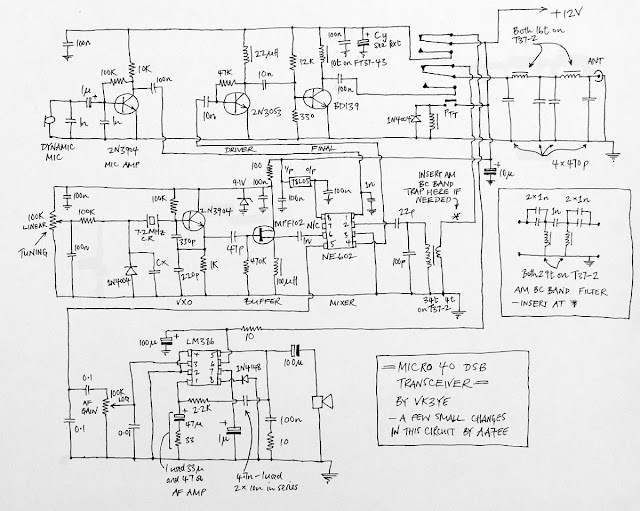 +12V
Both 16t on
T37-2
ANT
100n
100K
10K
100n
1µ
+
1n
1n
DYNAMIC
MIC
2N3904
MIC AMP
100n
22µH
47K
10n
10n
2N3053
DRIVER
12K
10t on FT37-43
100n
+
Cy
see text
100n
BD139
330
FINAL
1N4004
PTT
+
10µ
4 x 470p
100K
LINEAR
TUNING
100K
100n
100n
7.2MHz
CR
1N4004
Cx
VXO
100K
2N3904
330p
220p
1K
47p
9.1V
100
100n
MPF102
470K
100µH
BUFFER
i/p
o/p
78L05
100n
100n
1n
N/C
8
7
6
5
1
2
3
4
1n
NE602
MIXER
22p
100p
INSERT AM
BC BAND
TRAP HERE IF
NEEDED
*
34t 4t
on T37-2
2 x 1n
2 x 1n
1n
1n
1n
Both 29t on T37-2
AM BC BAND FILTER
- INSERT AT *
LM386
100µ
+
4
3
2
1
5
6
7
8
10
1N4148
+
100µ
0.1
100K
LOG
AF
GAIN
0.1
0.01
2.2K
+
47µ
33
+
1µ
100n
10
1 used 33µ
and 47Ω
AF AMP
47n - I used
2 x 10n in series
= MICRO 40 DSB
TRANSCEIVER =
BY VK3YE
- A FEW SMALL CHANGES
IN THIS CIRCUIT BY AA7EE